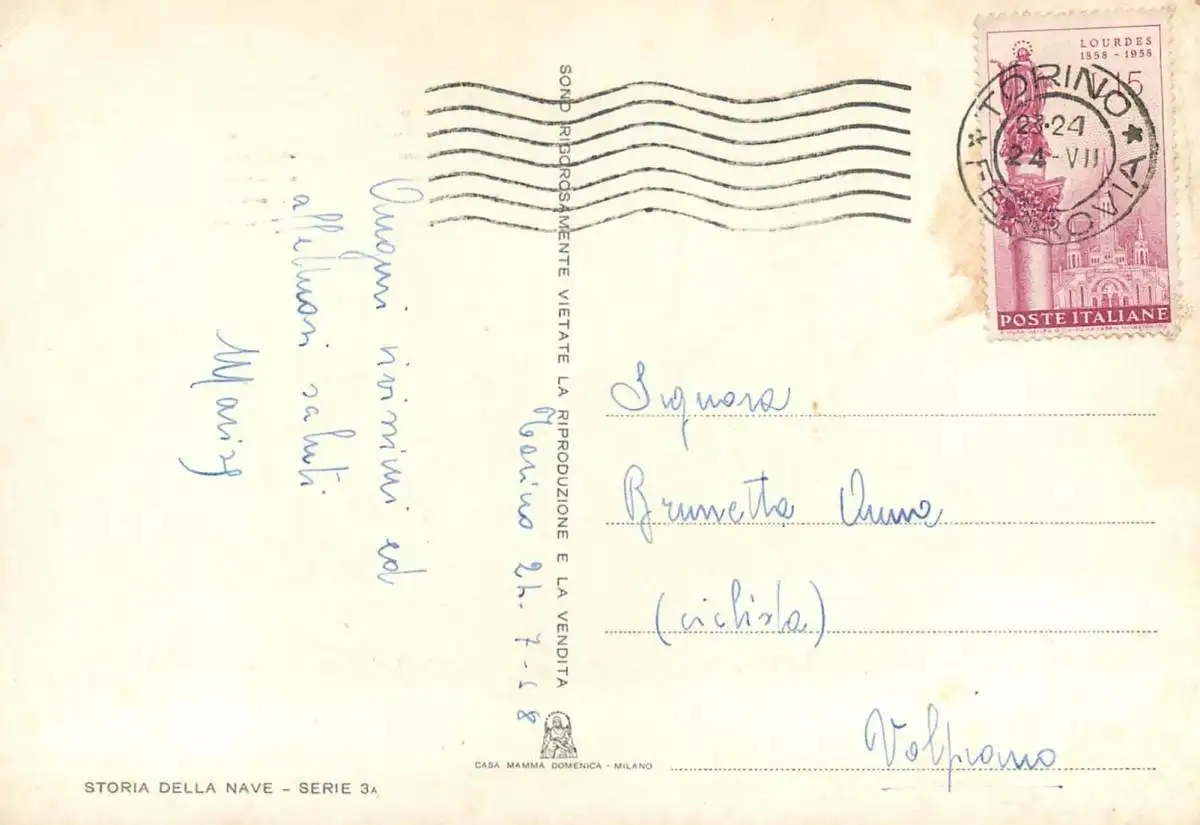 Auguri vivissimi ed
affettuosi saluti
Torino 24. 7 - 58
SONO RIGOROSAMENTE VIETATE LA RIPRODUZIONE E LA VENDITA
CASA MAMMA DOMENICA - MILANO
STORIA DELLA NAVE - SERIE 3A
LOURDES
1858 - 1958
15
POSTE ITALIANE
TORINO
23·24
24 - VII
FERROVIA
Signora
Brunetta Anna
(ciclista)
Volpiano